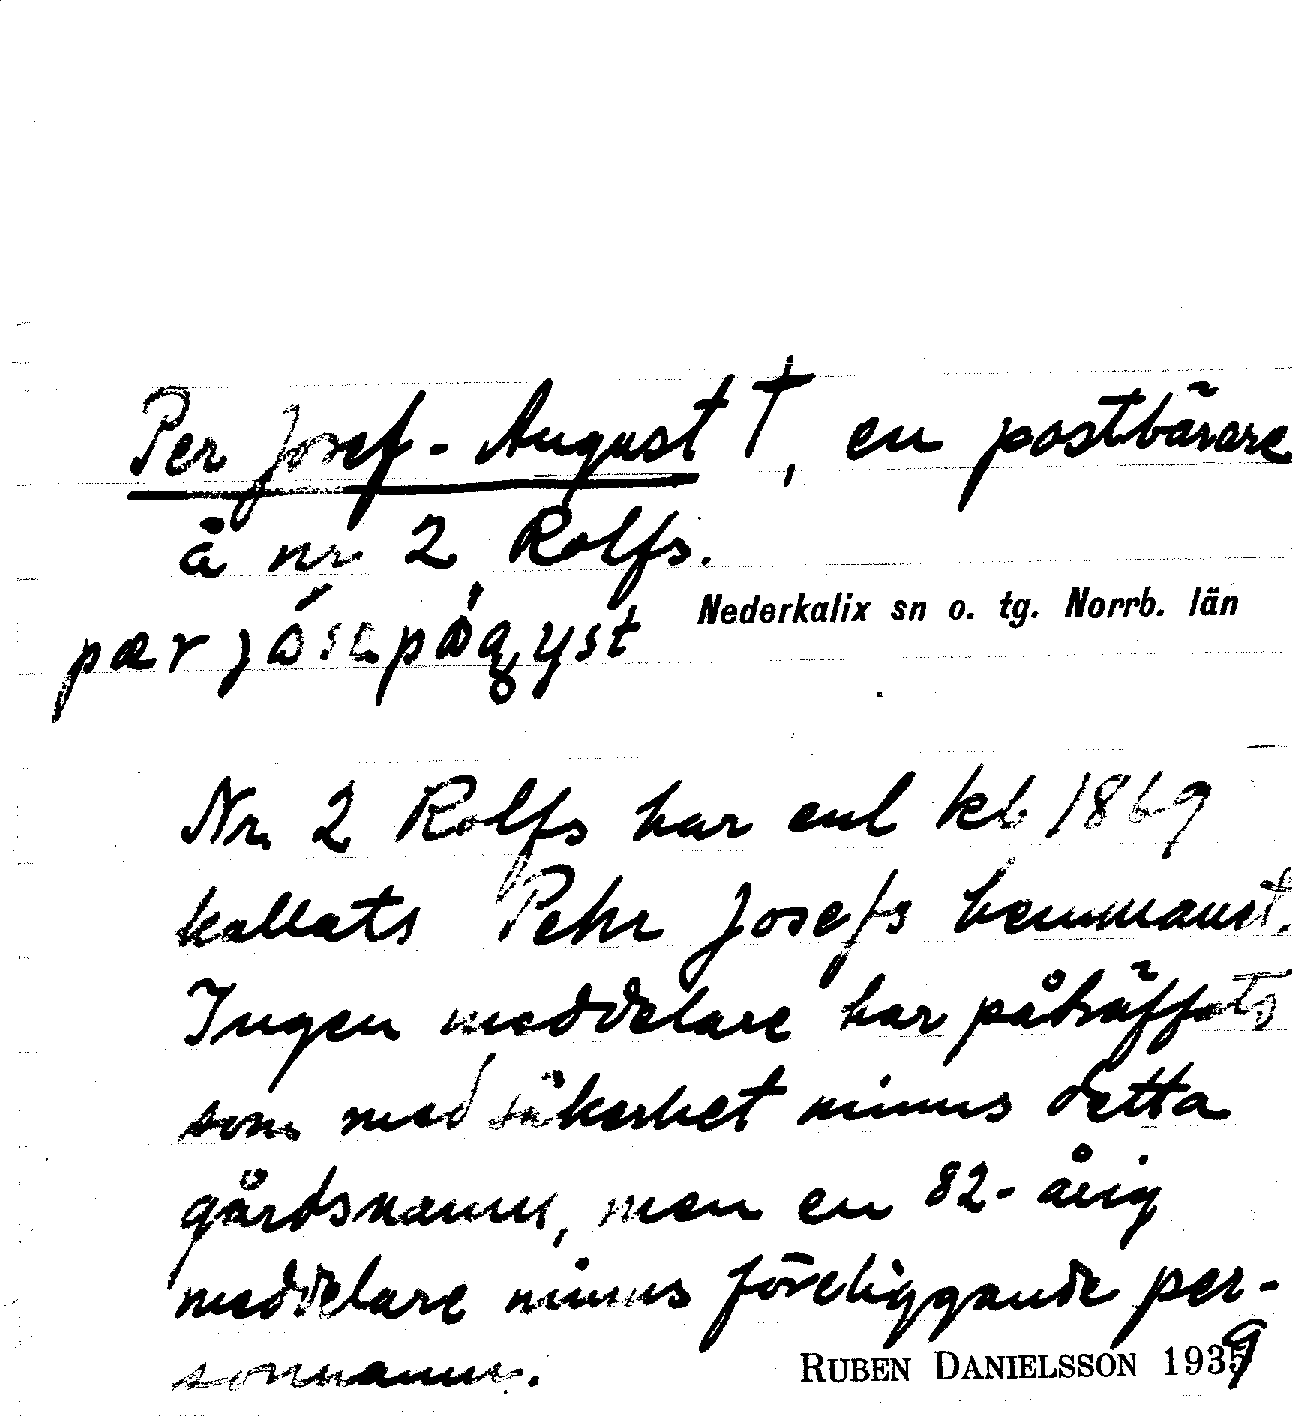 Per Josef-August †, en postbärare
å nr 2 Rolfs.
Nederkalix sn o. tg. Norrb. län
Nr 2 Rolfs har enl kb 1869
kallats Pehr Josefs hemmanet.
Ingen meddelare har påträffats
som med säkerhet minns detta
gårdsnamn, men en 82-årig
meddelare minns föreliggande per-
sonnamn.
RUBEN DANIELSSON 1939